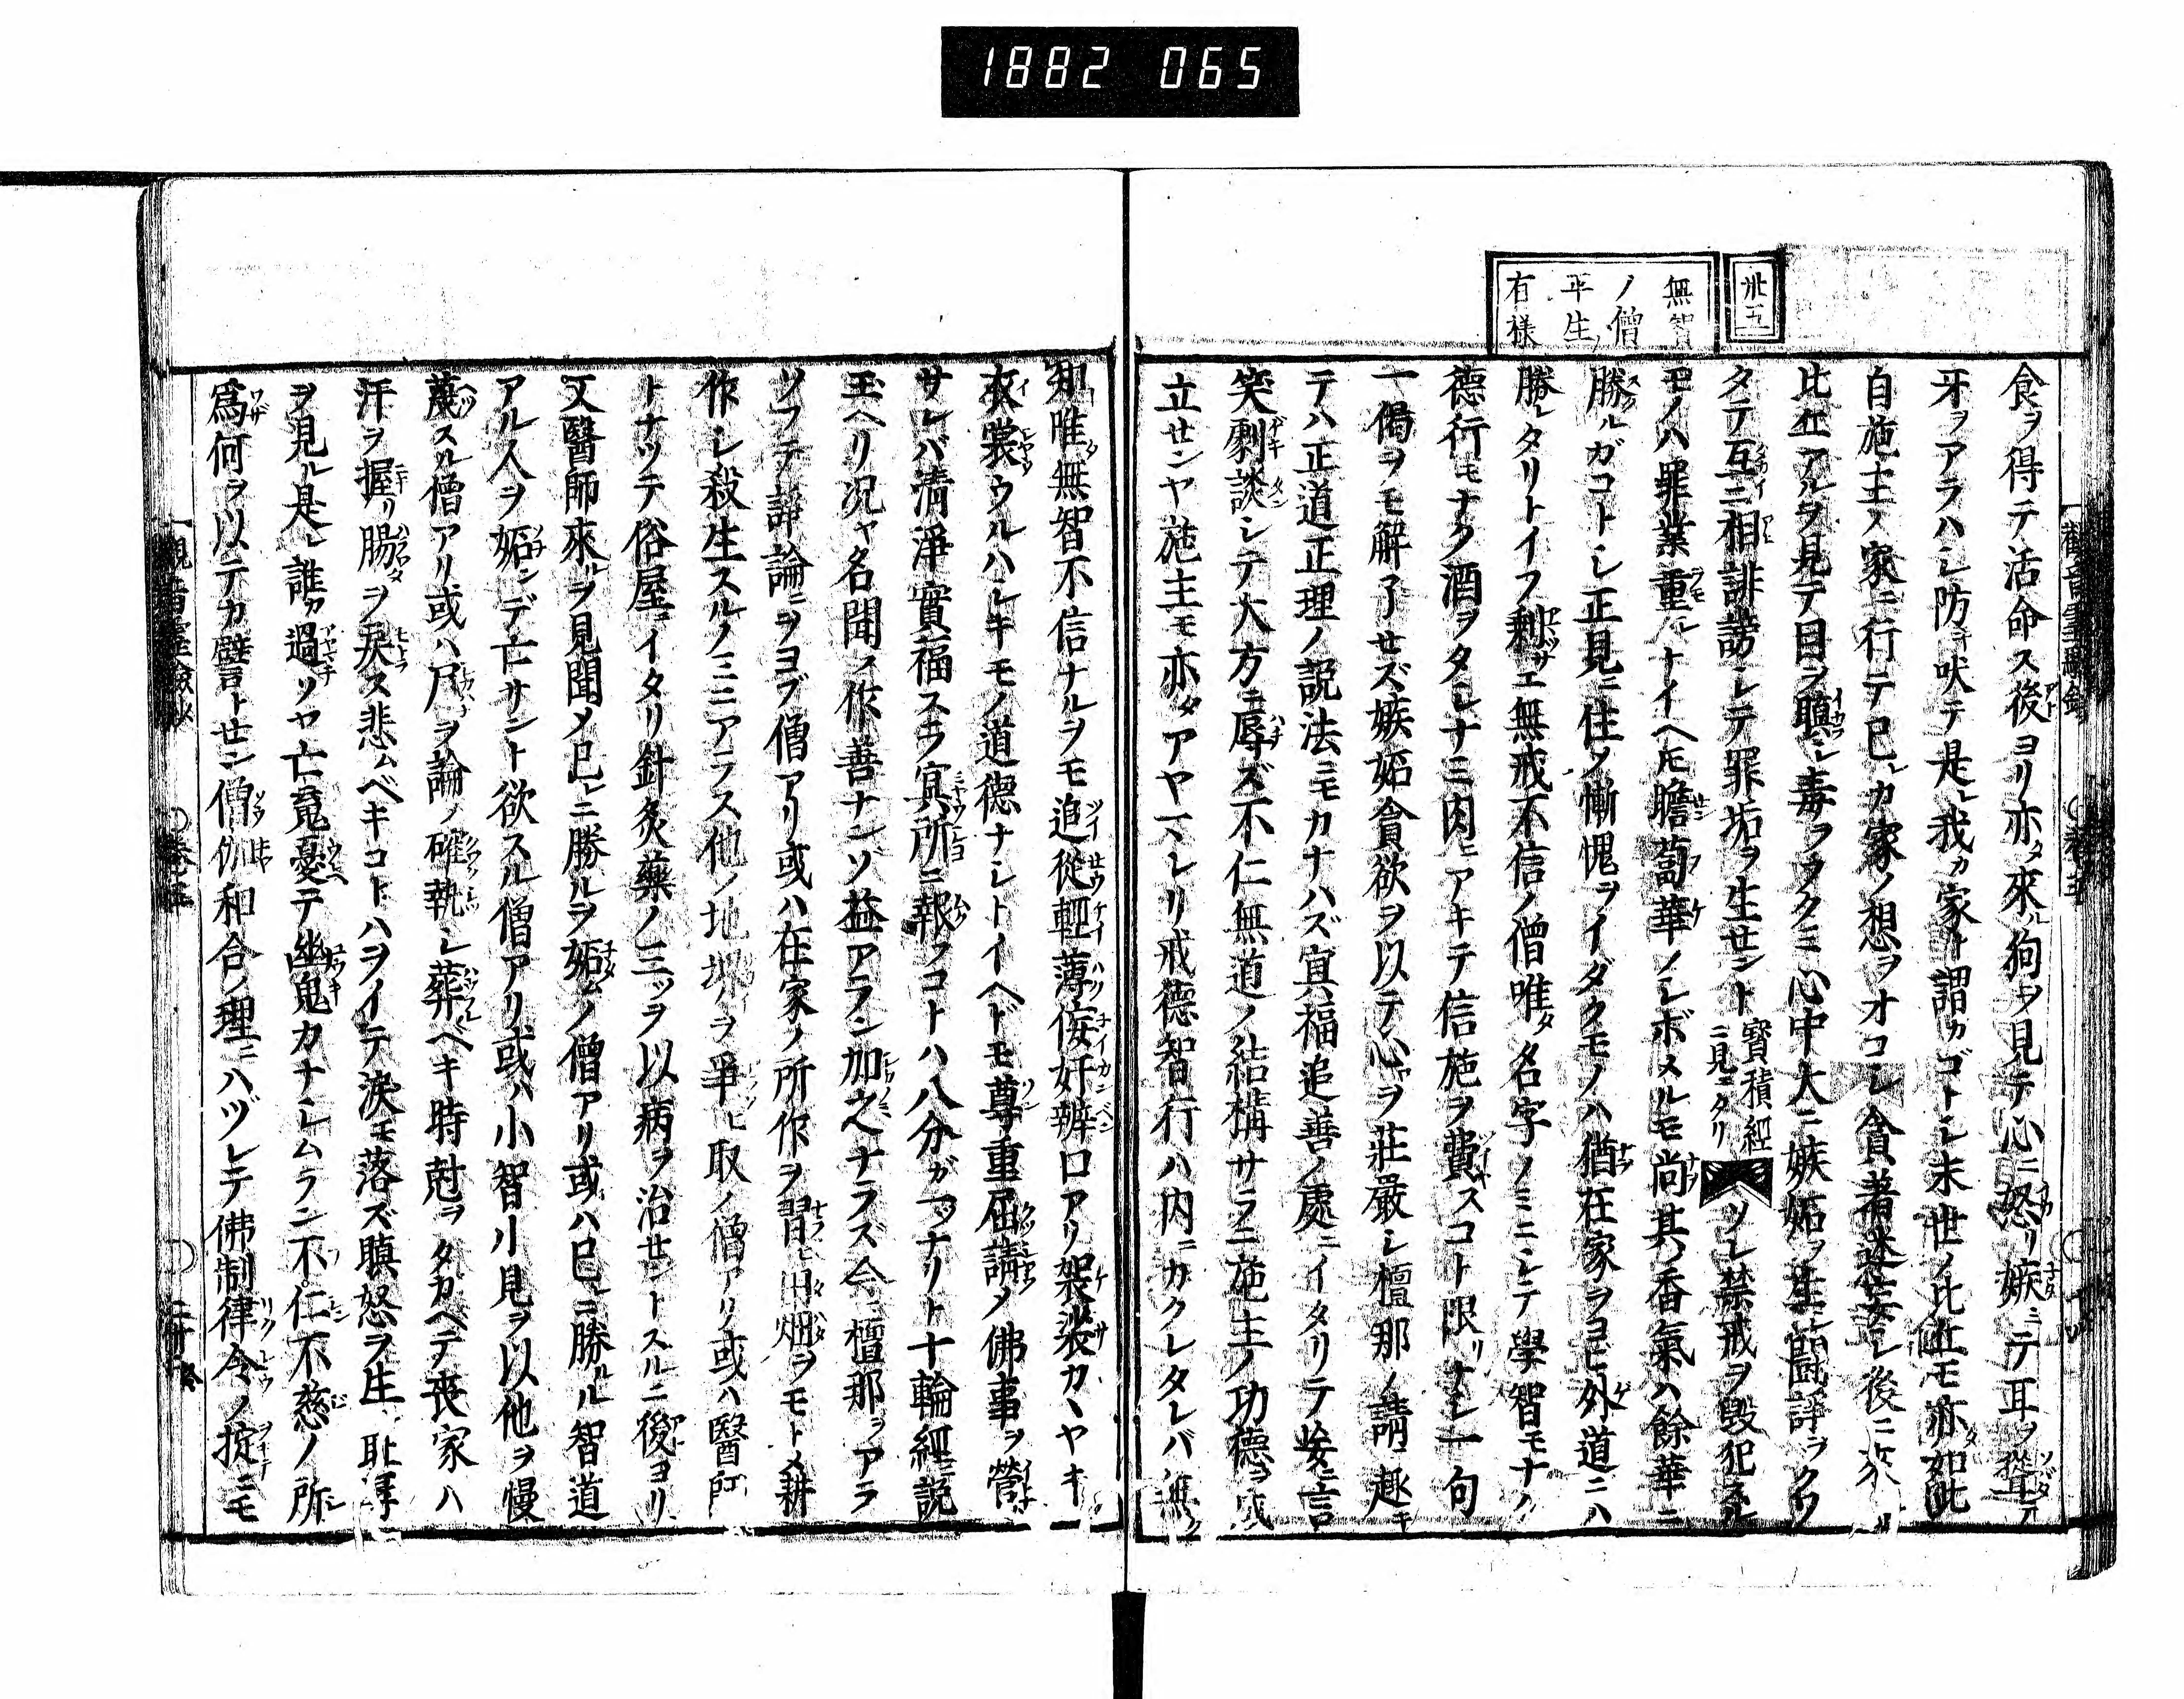 1882 065
卅五
無智
ノ僧
平生ノ
有様
食ヲ得テ活命ス後ヨリ亦タ來ル狗ヲ見テ心ニ怒リ嫉ミテ耳ヲ聳テ
牙ヲアラハシ防キ吠テ是レ我カ家ト謂カゴトシ末世ノ比丘モ亦タ如此
自施主ノ家ニ行テ已レカ家ノ想ヲオコシ貪著迷妄シ後ニ來ル
比丘アルヲ見テ目ヲ瞋シ毒ヲフクミ心中大ニ嫉妬ヲ生シ闘諍ヲクワ
タテ互ニ相誹謗シテ罪垢ヲ生せント寳積經ニ見ニタリソレ禁戒ヲ毀犯スル
モノハ罪業重シトイヘ𪜈瞻蔔華ノシボメルモ尚其ノ香氣ハ餘華ニ
勝ルガコトシ正見ニ住ノ慚愧ヲイダクモノハ猶在家ヲヨヒ外道ニハ
勝レタリトイフ剰サエ無戒不信ノ僧唯タ名字ノミニシテ學智モナク
德行モナク酒ヲタシナミ肉ニアキテ信施ヲ費スコト限リナシ一句
一偈ヲモ解了せズ嫉妬貪欲ヲ以テ心ヲ莊嚴シ檀那ノ請ニ趣キ
テハ正道正理ノ説法ニモカナハズ冥福追善ノ處ニイタリテ妄ニ言
笑劇談シテ大方ニ辱ズ不仁無道ノ結構サラニ施主ノ功德ヲ成
立せンヤ施主モ亦タアヤマレリ戒德智行ハ内ニカクレタレバ無ク
知唯無智不信ナルヲモ追從輕薄侫奸辨口アリ袈裟カヽヤキ
衣裳ウルハシキモノ道德ナシトイヘドモ尊重屈請メ佛事ヲ營
サレバ清淨實福スラ冥所ニ報フコトハ八分ガ一ツナリト十輪經ニ説
玉ヘリ况ヤ名聞ノ作善ナンゾ益アラン加之ナラズ今檀那ヲアラ
ソフテ諍論ニヲヨブ僧アリ或ハ在家ノ所作ヲ習ヒ田畑ヲモトメ耕
作シ殺生スルノミニアラス他ノ地堺ヲ爭ヒ取ノ僧アリ或ハ醫師
トナツテ俗屋ニイタリ針灸藥ノ三ツヲ以病ヲ治せントスルニ後ヨリ
又醫師來ルヲ見聞メ已レニ勝ルヲ妬ムノ僧アリ或ハ已レニ勝ルル智道
アル人ヲ妬ンデ亡サント欲スル僧アリ或ハ小智小見ヲ以他ヲ慢
蔑スル僧アリ或ハ尸ヲ論ノ確執シ葬ベキ時尅ヲタガヘテ喪家ハ
汗ヲ握リ腸ヲ戻ス悲ムベキコトハヲイテ涙モ落ズ瞋怒ヲ生シ耻辱
ヲ見ル是レ誰カ過ソヤ亡䰟憂テ幽鬼カナシムラン不仁不慈ノ所
爲何ヲ以テカ譬トせン僧伽和合ノ理ニハヅレテ佛制律令ノ掟ニモ
觀音靈驗鈔 ○卷五 ○ 二十